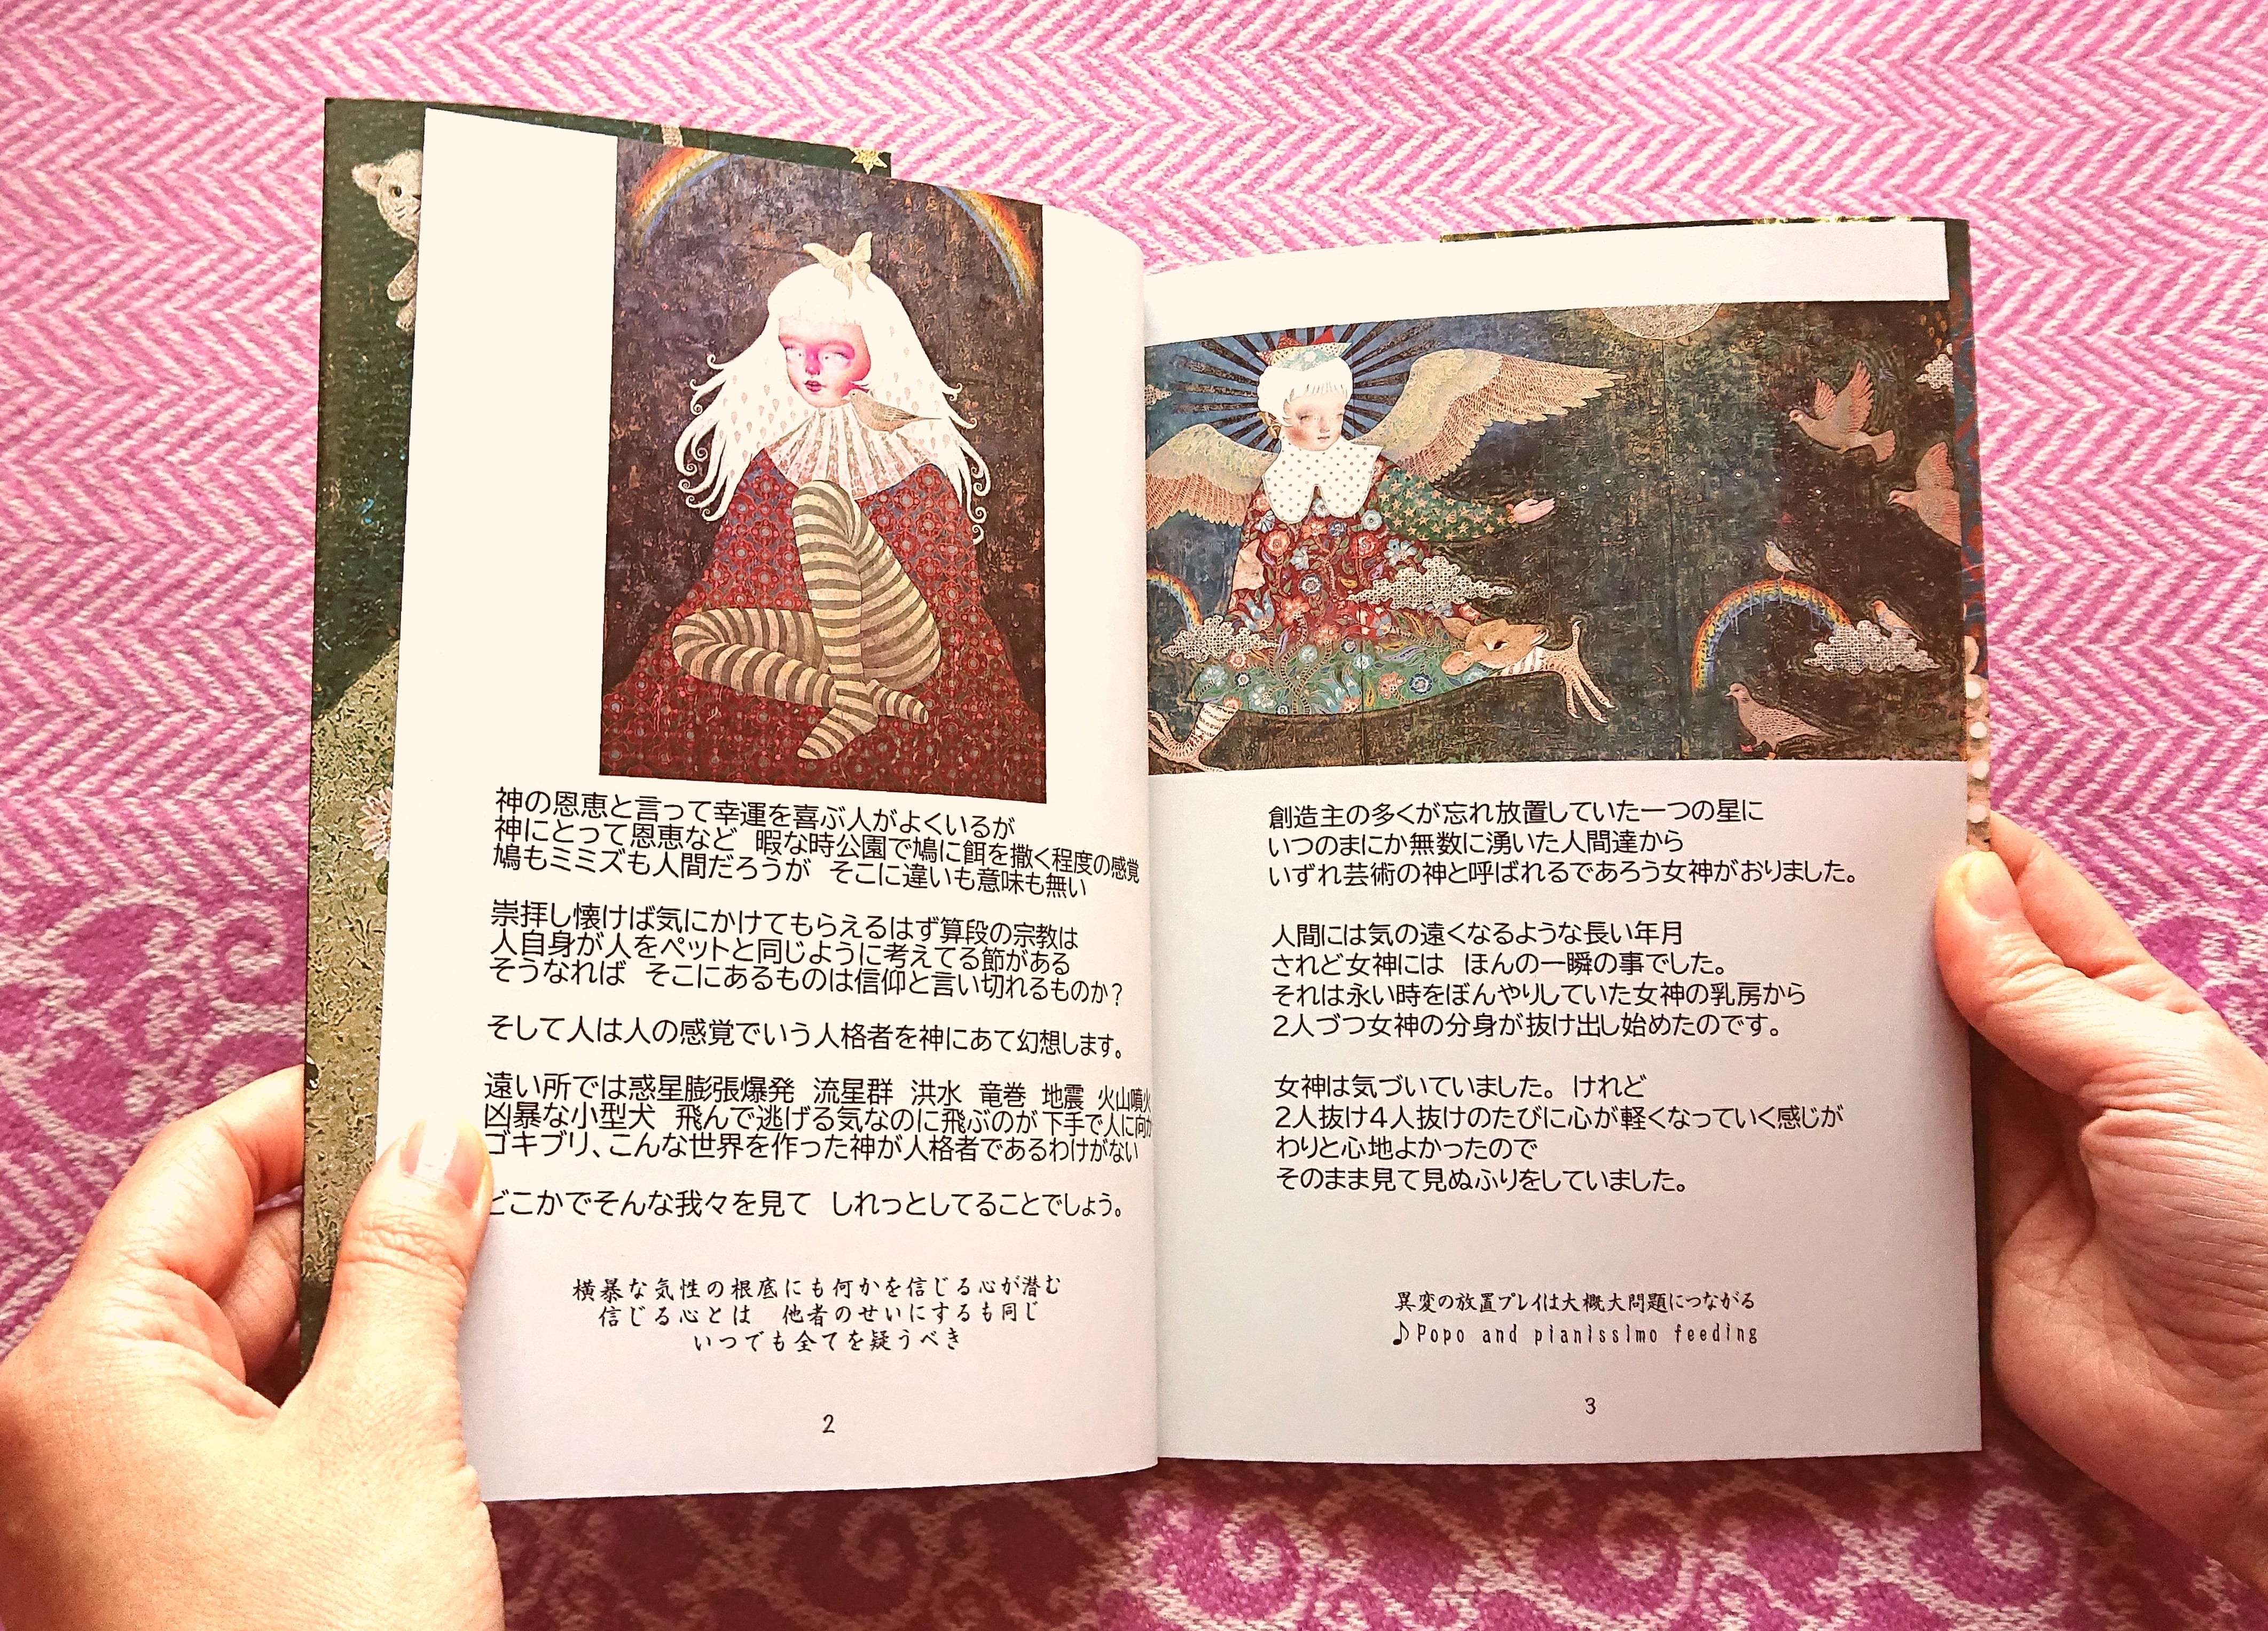 神の恩恵と言って幸運を喜ぶ人がよくいるが
神にとって恩恵など　暇な時公園で鳩に餌を撒く程度の感覚
鳩もミミズも人間だろうが　そこに違いも意味も無い
崇拝し懐けば気にかけてもらえるはず算段の宗教は
人自身が人をペットと同じように考えてる節がある
そうなれば　そこにあるものは信仰と言い切れるものか？
そして人は人の感覚でいう人格者を神にあて幻想します。
遠い所では惑星膨張爆発　流星群　洪水　竜巻　地震　火山噴火
凶暴な小型犬　飛んで逃げる気なのに飛ぶのが下手で人に向か
ゴキブリ、こんな世界を作った神が人格者であるわけがない
どこかでそんな我々を見て　しれっとしてることでしょう。
横暴な気性の根底にも何かを信じる心が潜む
信じる心とは　他者のせいにするも同じ
いつでも全てを疑うべき
2
創造主の多くが忘れ放置していた一つの星に
いつのまにか無数に湧いた人間達から
いずれ芸術の神と呼ばれるであろう女神がおりました。
人間には気の遠くなるような長い年月
されど女神には　ほんの一瞬の事でした。
それは永い時をぼんやりしていた女神の乳房から
2人づつ女神の分身が抜け出し始めたのです。
女神は気づいていました。けれど
2人抜け4人抜けのたびに心が軽くなっていく感じが
わりと心地よかったので
そのまま見て見ぬふりをしていました。
異変の放置プレイは大概大問題につながる
♪Popo and pianissimo feeding
3